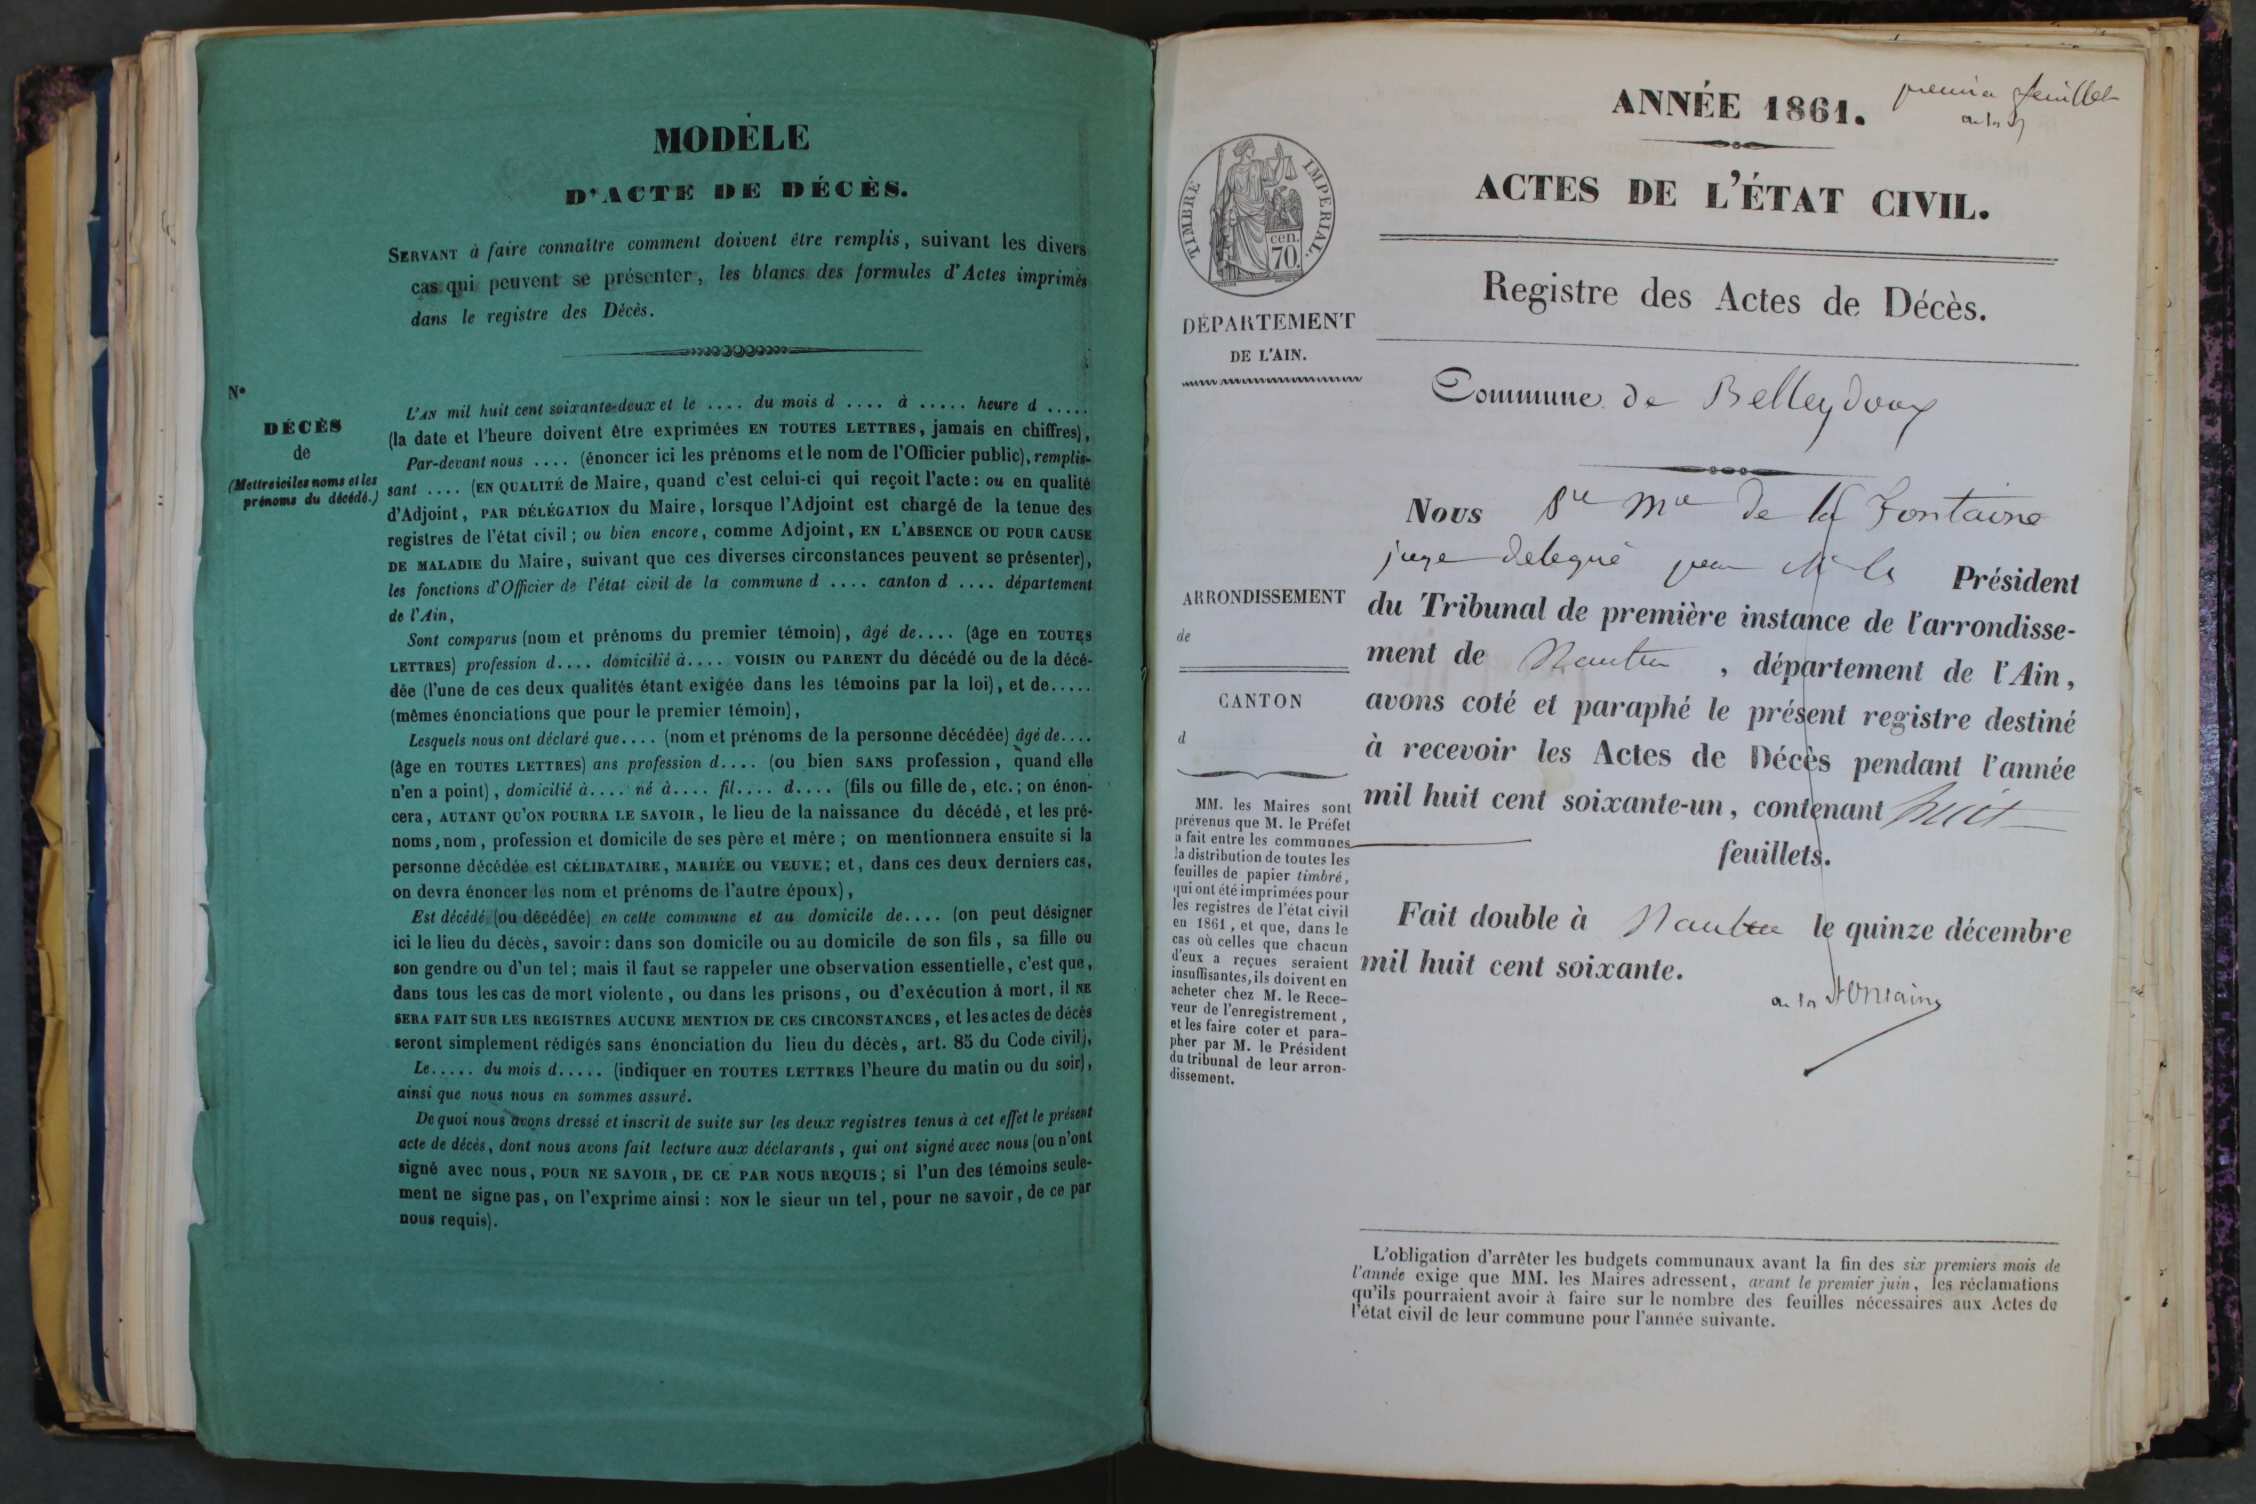 MODÈLE
D'ACTE DE DÉCÈS.
SERVANT à faire connaître comment doivent être remplis, suivant les divers
cas qui peuvent se présenter, les blancs des formules d'Actes imprimés
dans le registre des Décès.
N°
DÉCÈS
de
(Mettre ici les noms et les
prénoms du décédé.)
L'AN mil huit cent soixante-deux et le .... du mois d .... à ..... heure d .....
(la date et l'heure doivent être exprimées EN TOUTES LETTRES, jamais en chiffres),
Par-devant nous .... (énoncer ici les prénoms et le nom de l'Officier public), remplis-
sant .... (EN QUALITÉ de Maire, quand c'est celui-ci qui reçoit l'acte: ou en qualité
d'Adjoint, PAR DÉLÉGATION du Maire, lorsque l'Adjoint est chargé de la tenue des
registres de l'état civil; ou bien encore, comme Adjoint, EN L'ABSENCE OU POUR CAUSE
DE MALADIE du Maire, suivant que ces diverses circonstances peuvent se présenter),
les fonctions d'Officier de l'état civil de la commune d .... canton d .... département
de l'Ain,
Sont comparus (nom et prénoms du premier témoin), âgé de.... (âge en TOUTES
LETTRES) profession d.... domicilié à.... VOISIN OU PARENT du décédé ou de la décé-
dée (l'une de ces deux qualités étant exigée dans les témoins par la loi), et de.....
(mêmes énonciations que pour le premier témoin),
Lesquels nous ont déclaré que.... (nom et prénoms de la personne décédée) âgé de....
(âge en TOUTES LETTRES) ans profession d.... (ou bien SANS profession, quand elle
n'en a point), domicilié à.... né à.... fil.... d.... (fils ou fille de, etc.; on énon-
cera, AUTANT QU'ON POURRA LE SAVOIR, le lieu de la naissance du décédé, et les pré-
noms, nom, profession et domicile de ses père et mère; on mentionnera ensuite si la
personne décédée est CÉLIBATAIRE, MARIÉE OU VEUVE; et, dans ces deux derniers cas,
on devra énoncer les nom et prénoms de l'autre époux),
Est décédé (ou décédée) en cette commune et au domicile de.... (on peut désigner
ici le lieu du décès, savoir: dans son domicile ou au domicile de son fils, sa fille ou
son gendre ou d'un tel; mais il faut se rappeler une observation essentielle, c'est que,
dans tous les cas de mort violente, ou dans les prisons, ou d'exécution à mort, il NE
SERA FAIT SUR LES REGISTRES AUCUNE MENTION DE CES CIRCONSTANCES, et les actes de décès
seront simplement rédigés sans énonciation du lieu du décès, art. 85 du Code civil),
Le..... du mois d..... (indiquer en TOUTES LETTRES l'heure du matin ou du soir),
ainsi que nous nous en sommes assuré.
De quoi nous avons dressé et inscrit de suite sur les deux registres tenus à cet effet le présent
acte de décès, dont nous avons fait lecture aux déclarants, qui ont signé avec nous (ou n'ont
signé avec nous, POUR NE SAVOIR, DE CE PAR NOUS REQUIS; si l'un des témoins seule-
ment ne signe pas, on l'exprime ainsi: NON le sieur un tel, pour ne savoir, de ce par
nous requis).
premier feuillet
ANNÉE 1861.
ACTES DE L'ÉTAT CIVIL.
TIMBRE IMPÉRIAL.
cen.
70.
Registre des Actes de Décès.
DÉPARTEMENT
DE L'AIN.
Commune de Belleydoux
Nous de la Fontaine
juge délégué par Mr le Président
ARRONDISSEMENT
de
CANTON
d
du Tribunal de première instance de l'arrondisse-
ment de Nantua, département de l'Ain,
avons coté et paraphé le présent registre destiné
à recevoir les Actes de Décès pendant l'année
mil huit cent soixante-un, contenant huit
feuillets.
Fait double à Nantua le quinze décembre
mil huit cent soixante.
de la Fontaine
MM. les Maires sont
prévenus que M. le Préfet
a fait entre les communes
la distribution de toutes les
feuilles de papier timbré,
qui ont été imprimées pour
les registres de l'état civil
en 1861, et que, dans le
cas où celles que chacun
d'eux a reçues seraient
insuffisantes, ils doivent en
acheter chez M. le Rece-
veur de l'enregistrement,
et les faire coter et para-
pher par M. le Président
du tribunal de leur arron-
dissement.
L'obligation d'arrêter les budgets communaux avant la fin des six premiers mois de
l'année exige que MM. les Maires adressent, avant le premier juin, les réclamations
qu'ils pourraient avoir à faire sur le nombre des feuilles nécessaires aux Actes de
l'état civil de leur commune pour l'année suivante.